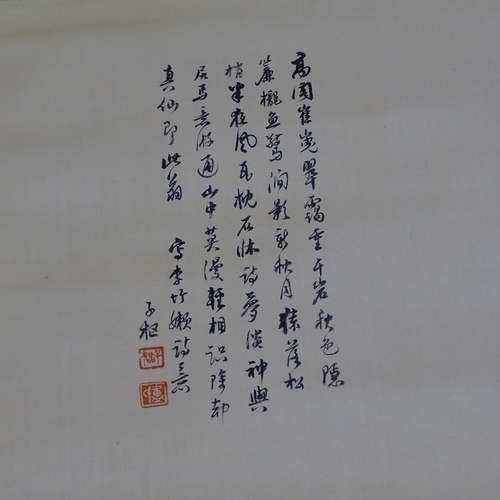 高閣崔嵬翠靄重千岩秋色隱
簾櫳魚驚澗影新秋月猿落松
梢半夜風瓦枕石牀詩夢淡神輿
尻馬意游通山中莫漫輕相識除却
真仙即此翁 寫李竹嬾詩意
子